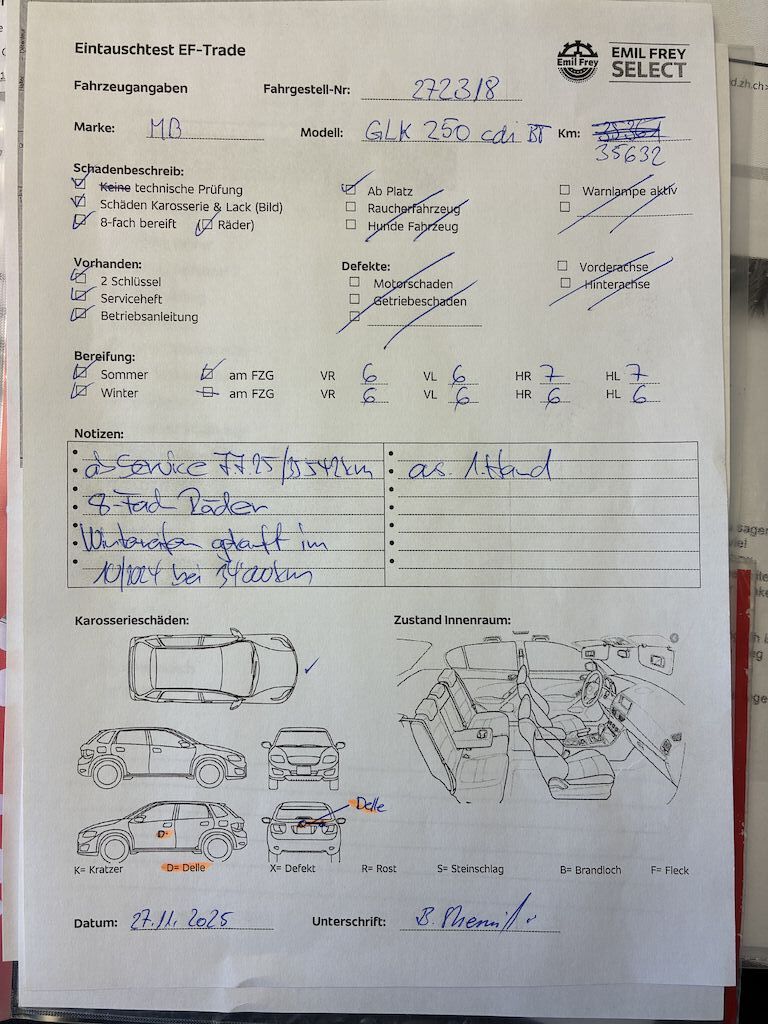 Eintauschtest EF-Trade
Emil Frey
EMIL FREY
SELECT
Fahrzeugangaben Fahrgestell-Nr: 272318
d.zh.ch>
Marke: MB Modell: GLK 250 cdi BT Km: 35361
35632
Schadenbeschreib:
Keine technische Prüfung Ab Platz Warnlampe aktiv
Schäden Karosserie & Lack (Bild) Raucherfahrzeug
8-fach bereift ( Räder) Hunde Fahrzeug
Vorhanden: Defekte: Vorderachse
2 Schlüssel Motorschaden Hinterachse
Serviceheft Getriebeschaden
Betriebsanleitung
Bereifung:
Sommer am FZG VR 6 VL 6 HR 7 HL 7
Winter am FZG VR 6 VL 6 HR 6 HL 6
Notizen:
ab Service 7.7.25/35542km aus 1.Hand
8-Fach Räder
Winterreifen gekauft im
10/2024 bei 34'000km
Karosserieschäden: Zustand Innenraum:
D
Delle
K= Kratzer D= Delle X= Defekt R= Rost S= Steinschlag B= Brandloch F= Fleck
Datum: 27.11.2025 Unterschrift: B.